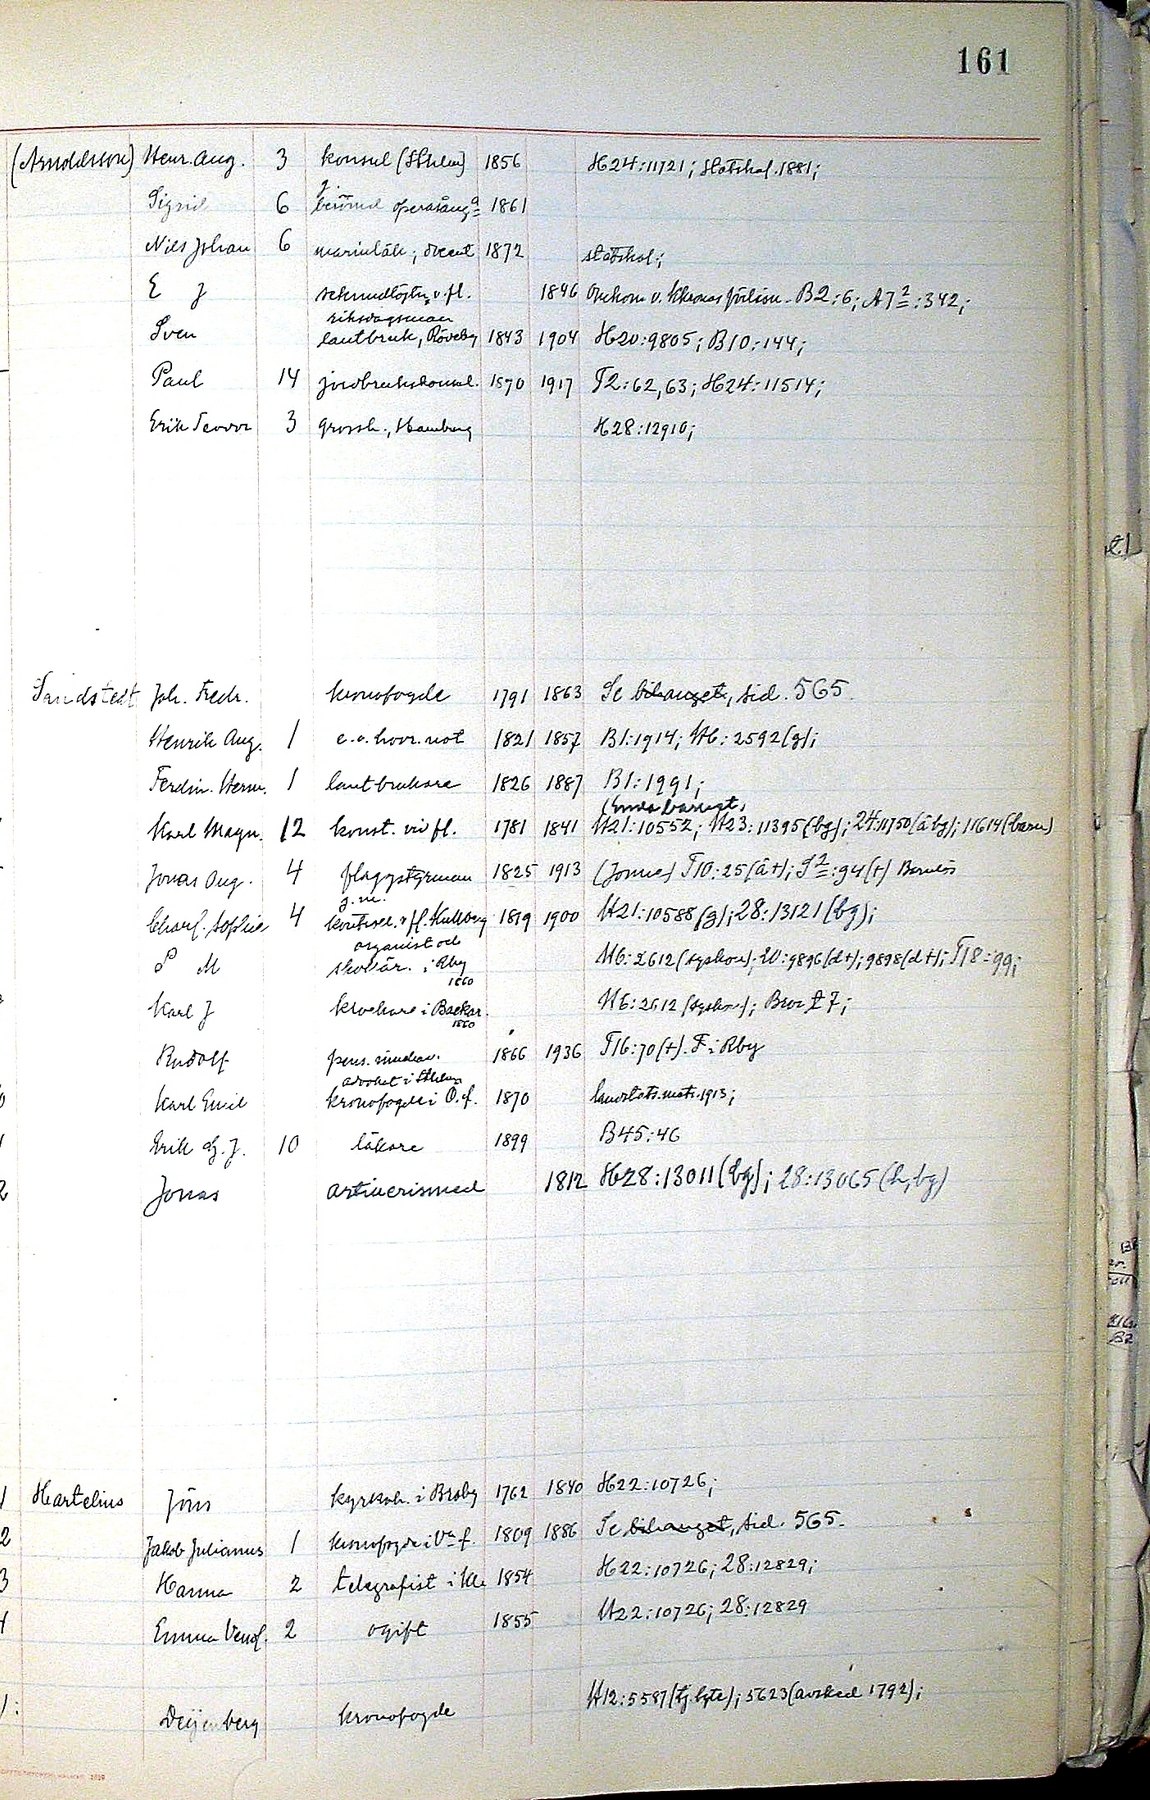 161
(Arnoldsson) Henr. Aug. 3 konsul (Sthlm) 1856 H24:11721; Statskal. 1881;
Sigrid 6 berömd operasång 1861
Nils Johan 6 marinläk; docent 1872 statskal;
E J v. fl. 1846 B2:6; A7²:342;
riksdagsman
Sven lantbruk, Röveby 1843 1904 H20:9805; B10:144;
Paul 14 jordbrukskonsul. 1870 1917 T2:62,63; H24:11514;
Erik 3 grossh., Hamburg H28:12910;
Sandstedt Joh. Fredr. kronofogde 1791 1863 Se bihanget, sid. 565.
Henrik Aug. 1 e.o. hovr. not 1821 1857 B1:1914; H6:2592(g);
Ferdin. Herm. 1 lantbrukare 1826 1887 B1:1991;
Karl Magn. 12 konst. vid fl. 1781 1841 H21:10552; H23:11395(bg); 24:11750(åbg); 11614(barn)
Jonas Aug. 4 flaggstyrman 1825 1913 (Jonne) T10:25(å+); T²:94(+)
g. m.
Charl. Sophie 4 1819 1900 H21:10588(g); 28:13121(bg);
organist och
P M skollär. i Rby H6:2612(syskon); 20:9896(d+); 9898(d+); T18:99;
1860
Karl J i Backar. H6:2612(syskon);
1860
Rudolf 1866 1936 T16:70(+). F i Rby
Karl Emil kronofogde i Ö.f. 1870 landstats.matr. 1913;
Erik G. J. 10 läkare 1899 B45:46
Jonas artillerismed 1812 H28:13011(bg); 28:13065(h,bg)
Hartelius Jöns kyrkoh. i Broby 1762 1840 H22:10726;
Jakob Julianus 1 kronofogde i Va f. 1809 1886 Se bihanget, sid. 565.
Hanna 2 telegrafist i Kla 1854 H22:10726; 28:12829;
Emma Vend. 2 ogift 1855 H22:10726; 28:12829
Deijenberg kronofogde H12:5587(tj.byte); 5623(avsked 1792);